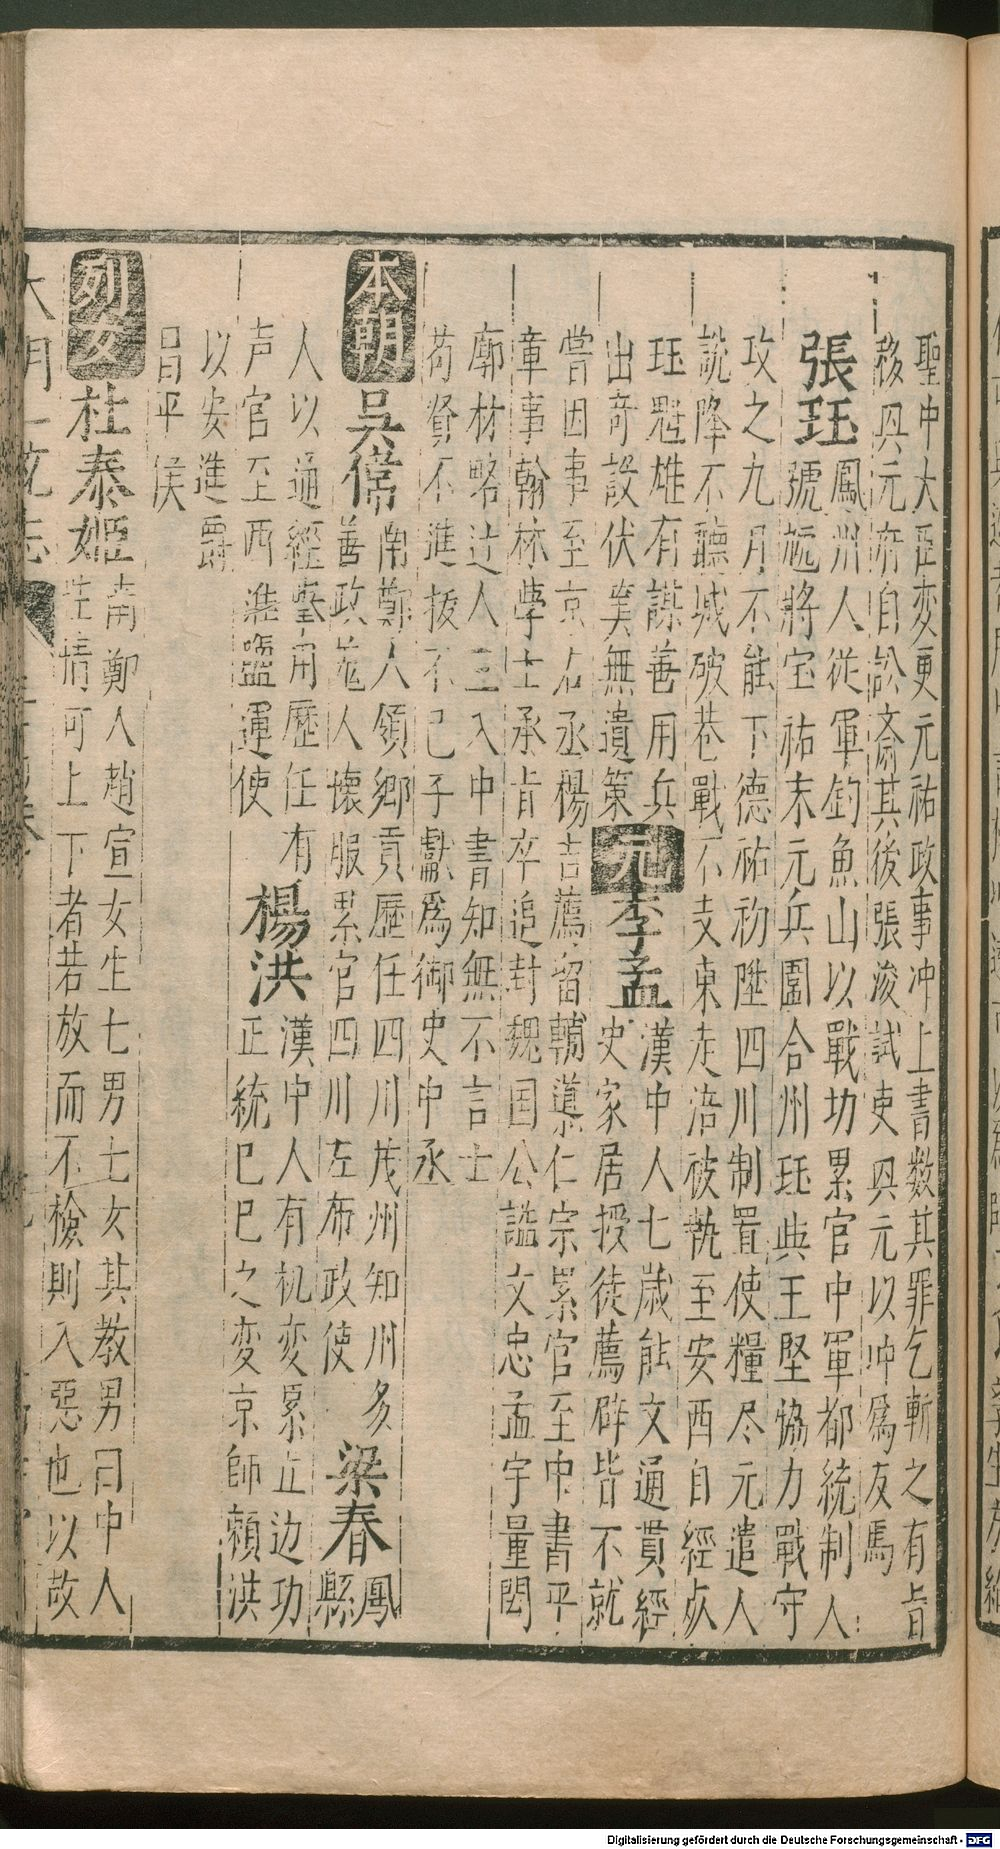 聖中大臣変更元祐政事冲上書数其罪乞斬之有旨
移興元府自訟斎其後張浚試吏興元以冲為友焉
張珏 鳳州人從軍釣魚山以戰功累官中軍都統制人
號尮將宝祐末元兵圍合州珏与王堅協力戰守
攻之九月不能下德祐初陞四川制置使糧尽元遣人
説降不聽城破巷戰不支東走涪被執至安西自經死
珏魁雄有謀善用兵
出奇設伏筭無遺策 元 李孟 漢中人七歳能文通貫經
史家居授徒薦辟皆不就
嘗因事至京右丞楊吉薦留輔導仁宗累官至中書平
章事翰林學士承旨卒追封魏国公謚文忠孟宇量閎
廓材略过人三入中書知無不言士
苟賢不進拔不已子獻為御史中丞
本朝 吴偆 南鄭人領鄉貢歷任四川茂州知州多
善政羗人懐服累官四川左布政使 梁春 鳳
縣
人以通經挙用歷任有
声官至两淮鹽運使 楊洪 漢中人有机变累立边功
正統己巳之変京師頼洪
以安進爵
昌平侯
列女 杜泰姬 南鄭人趙宣女生七男七女其教男曰中人
性情可上下者若放而不檢則入惡也以故
大明一統志
Digitalisierung gefördert durch die Deutsche Forschungsgemeinschaft - DFG